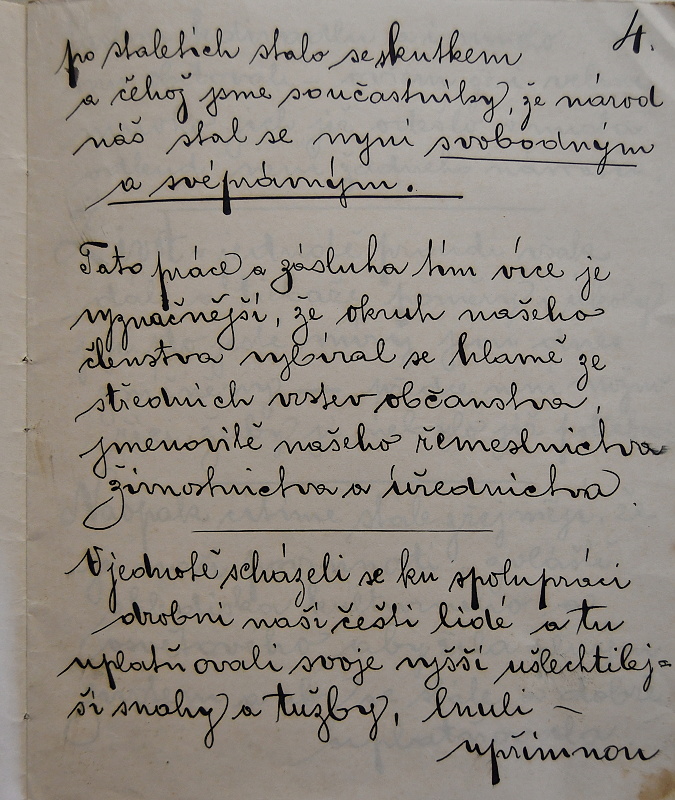 4.
po staletích stalo se skutkem
a čehož jsme součastníky, že národ
náš stal se nyní svobodným
a svéprávným.
Tato práce a zásluha tím více je
význačnější, že okruh našeho
členstva vybíral se hlavně ze
středních vrstev občanstva,
jmenovitě našeho řemeslnictva
živnostnictva a úřednictva.
V jednotě scházeli se ku spolupráci
drobní naši čeští lidé a tu
uplatňovali svoje vyšší ušlechtilej=
ší snahy a tužby, lnuli –
upřímnou